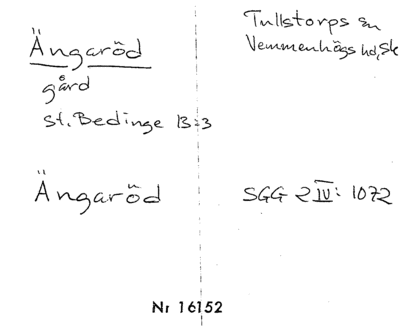 Ängaröd
gård
st. Bedinge B:3
Ängaröd
Tullstorps sn
Vemmenhögs hd, Sk
SGG 2 IV: 1072
Nr 16152